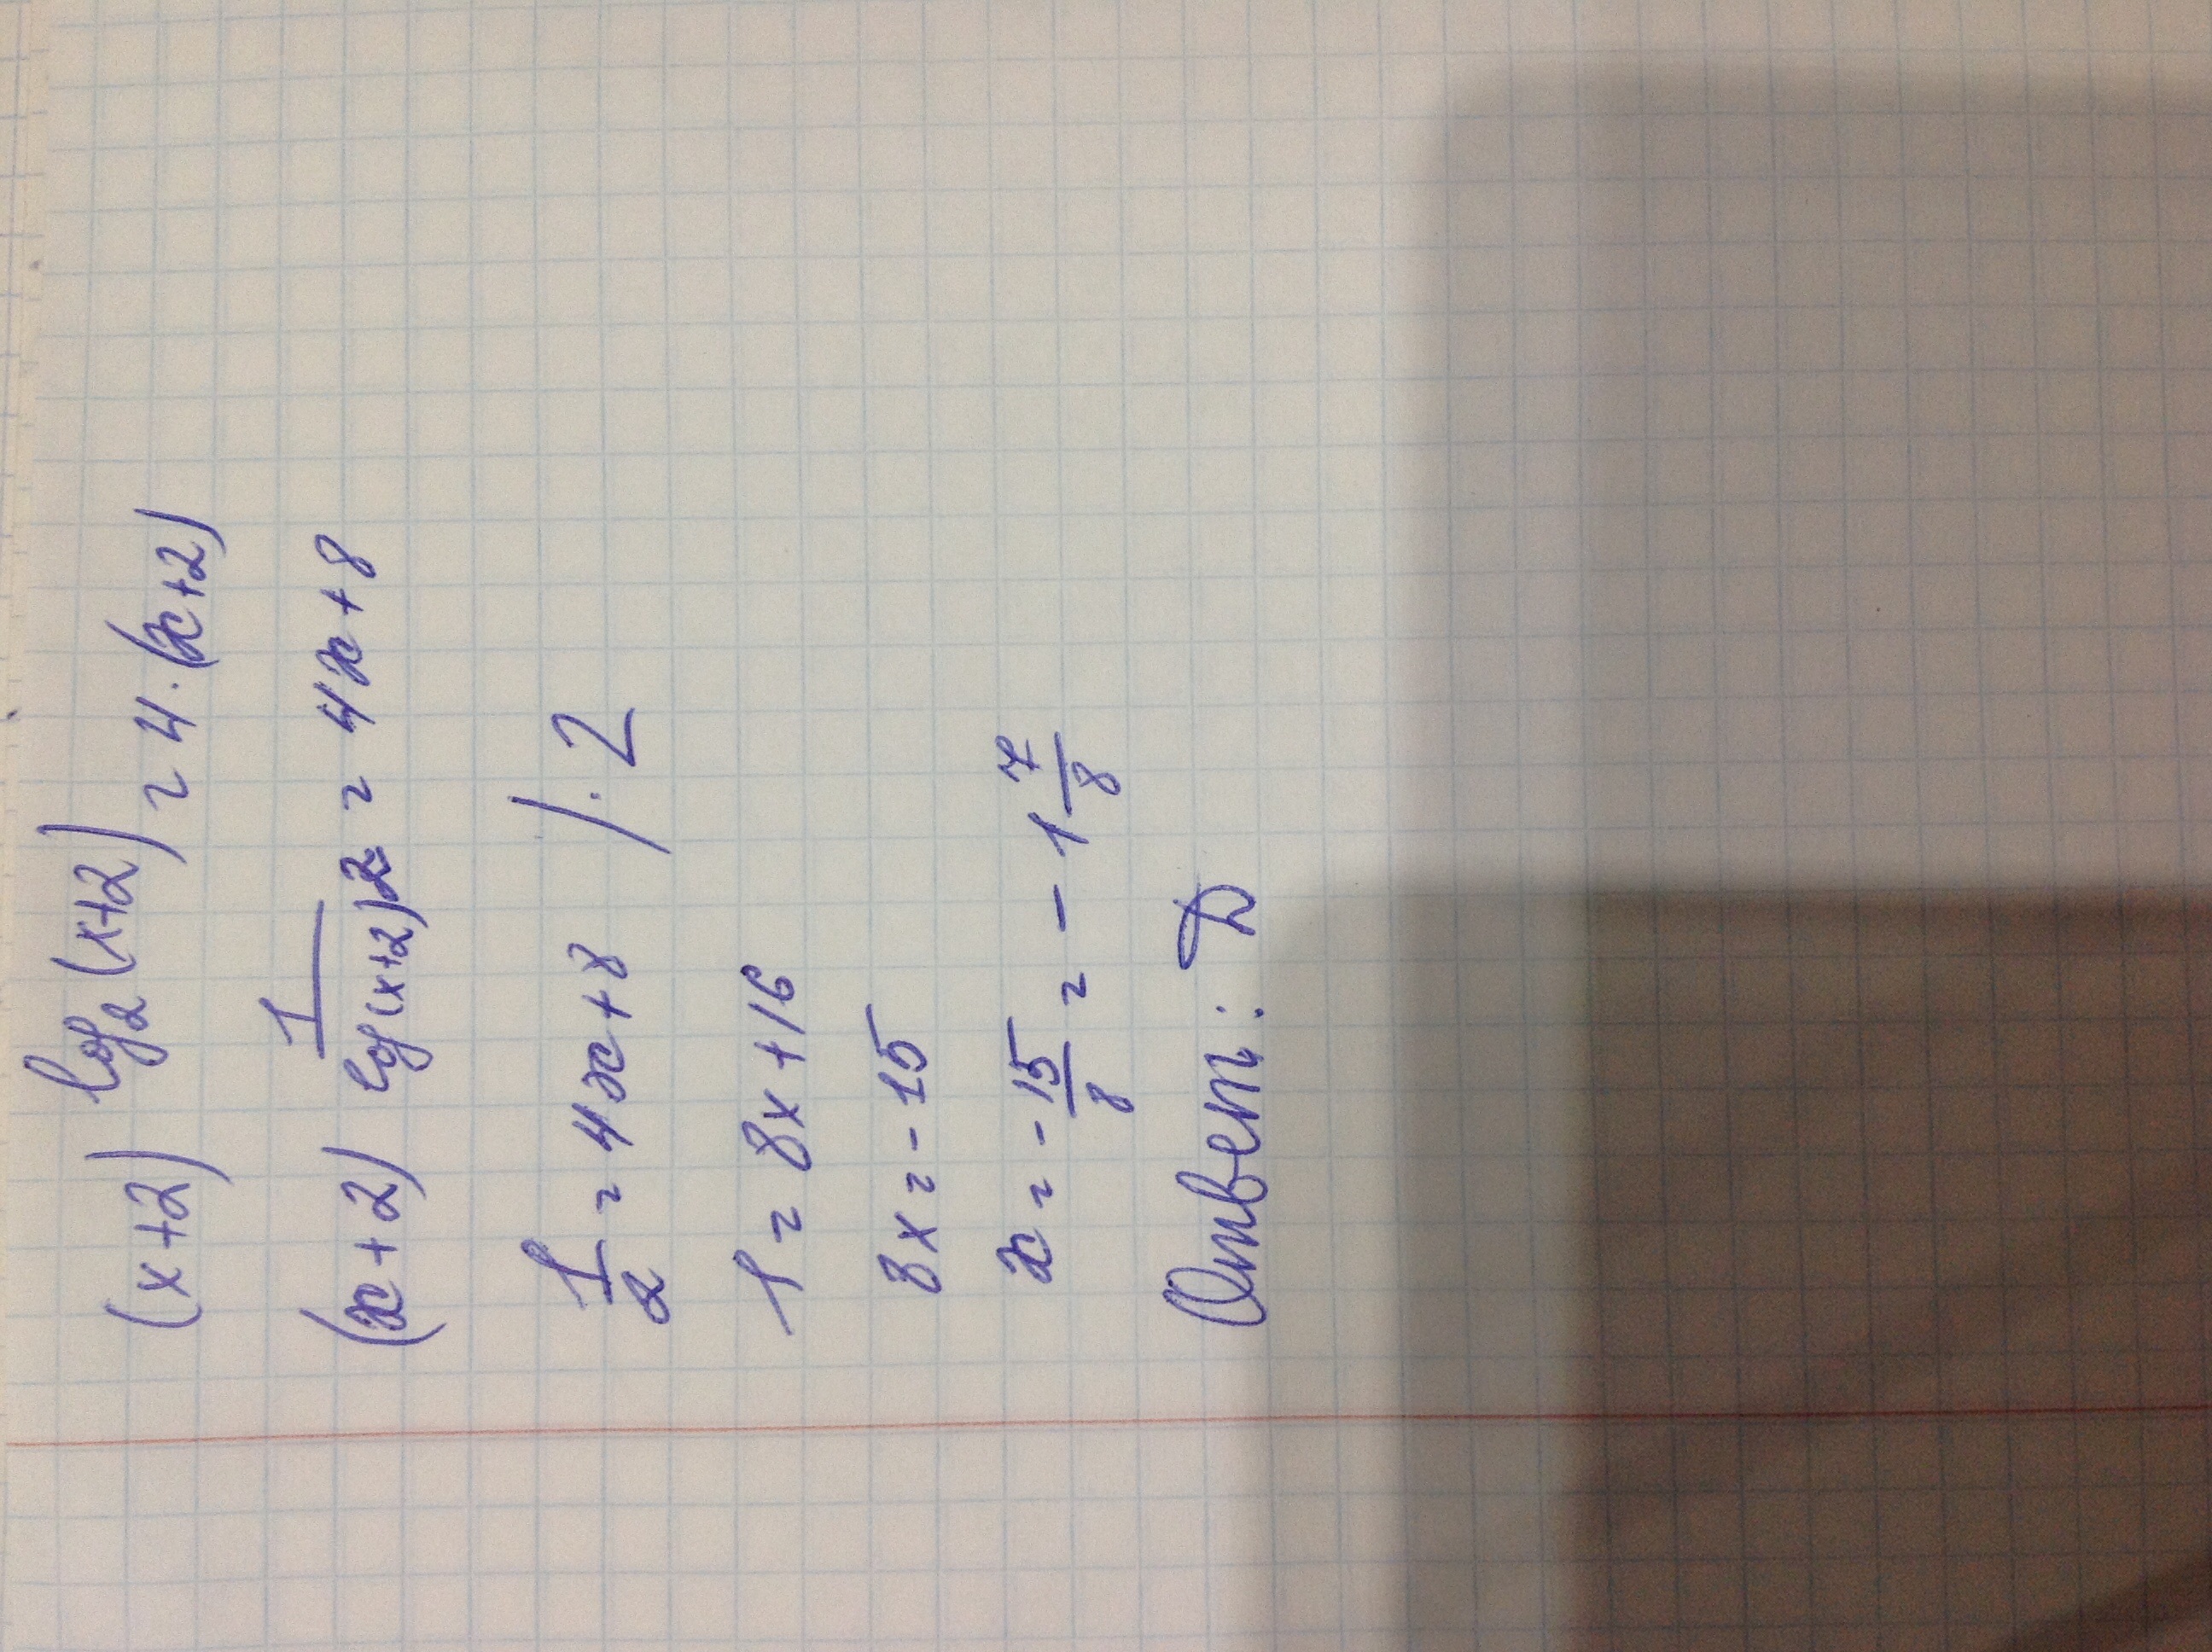 (x+2) log₂(x+2) = 4·(x+2)
(x+2) 1/log(x+2)2 = 4x+8
1/2 = 4x+8 /·2
1 = 8x+16
8x = -15
x = -15/8 = -1 7/8
Ответ: D